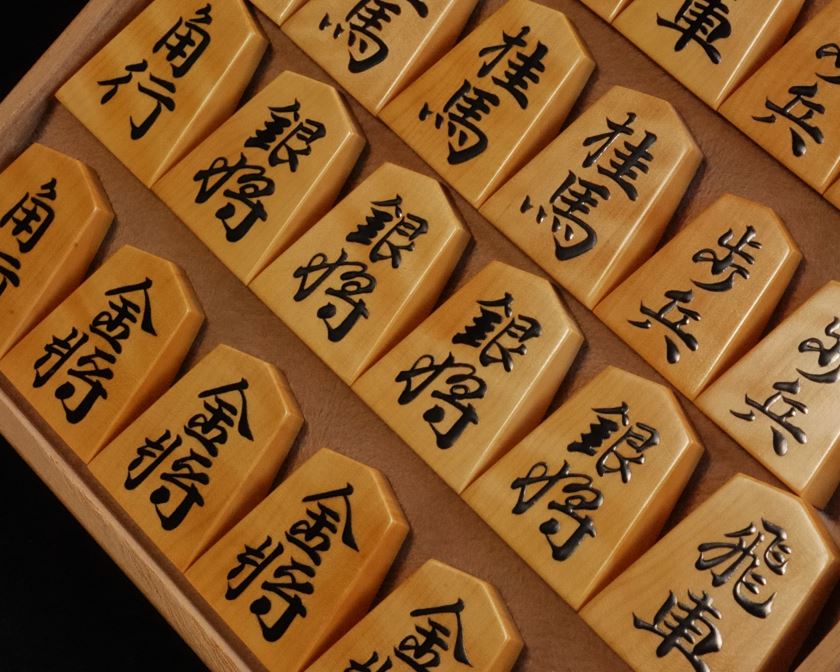 車
兵
馬
桂馬
桂馬
歩兵
歩兵
角行
銀将
銀将
銀将
銀将
飛車
角行
金将
金将
金将
金